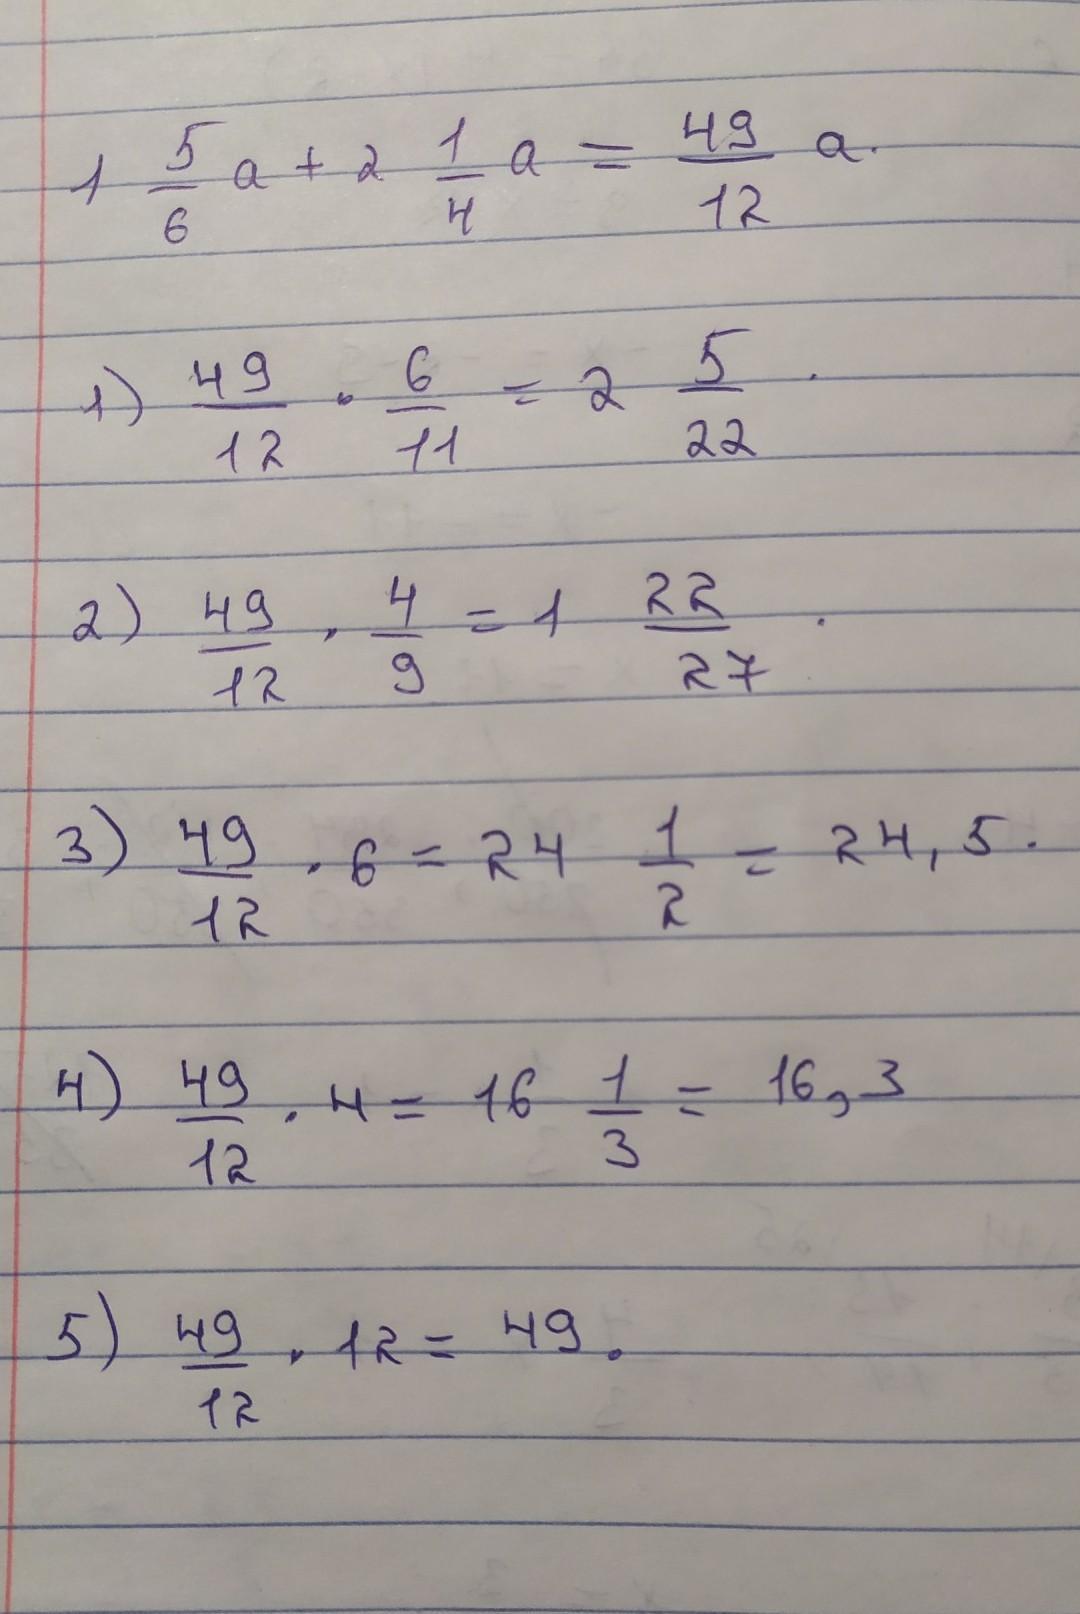 1 5/6 a + 2 1/4 a = 49/12 a.
1) 49/12 · 6/11 = 2 5/22 .
2) 49/12 · 4/9 = 1 22/27 .
3) 49/12 · 6 = 24 1/2 = 24,5.
4) 49/12 · 4 = 16 1/3 = 16,3
5) 49/12 · 12 = 49.